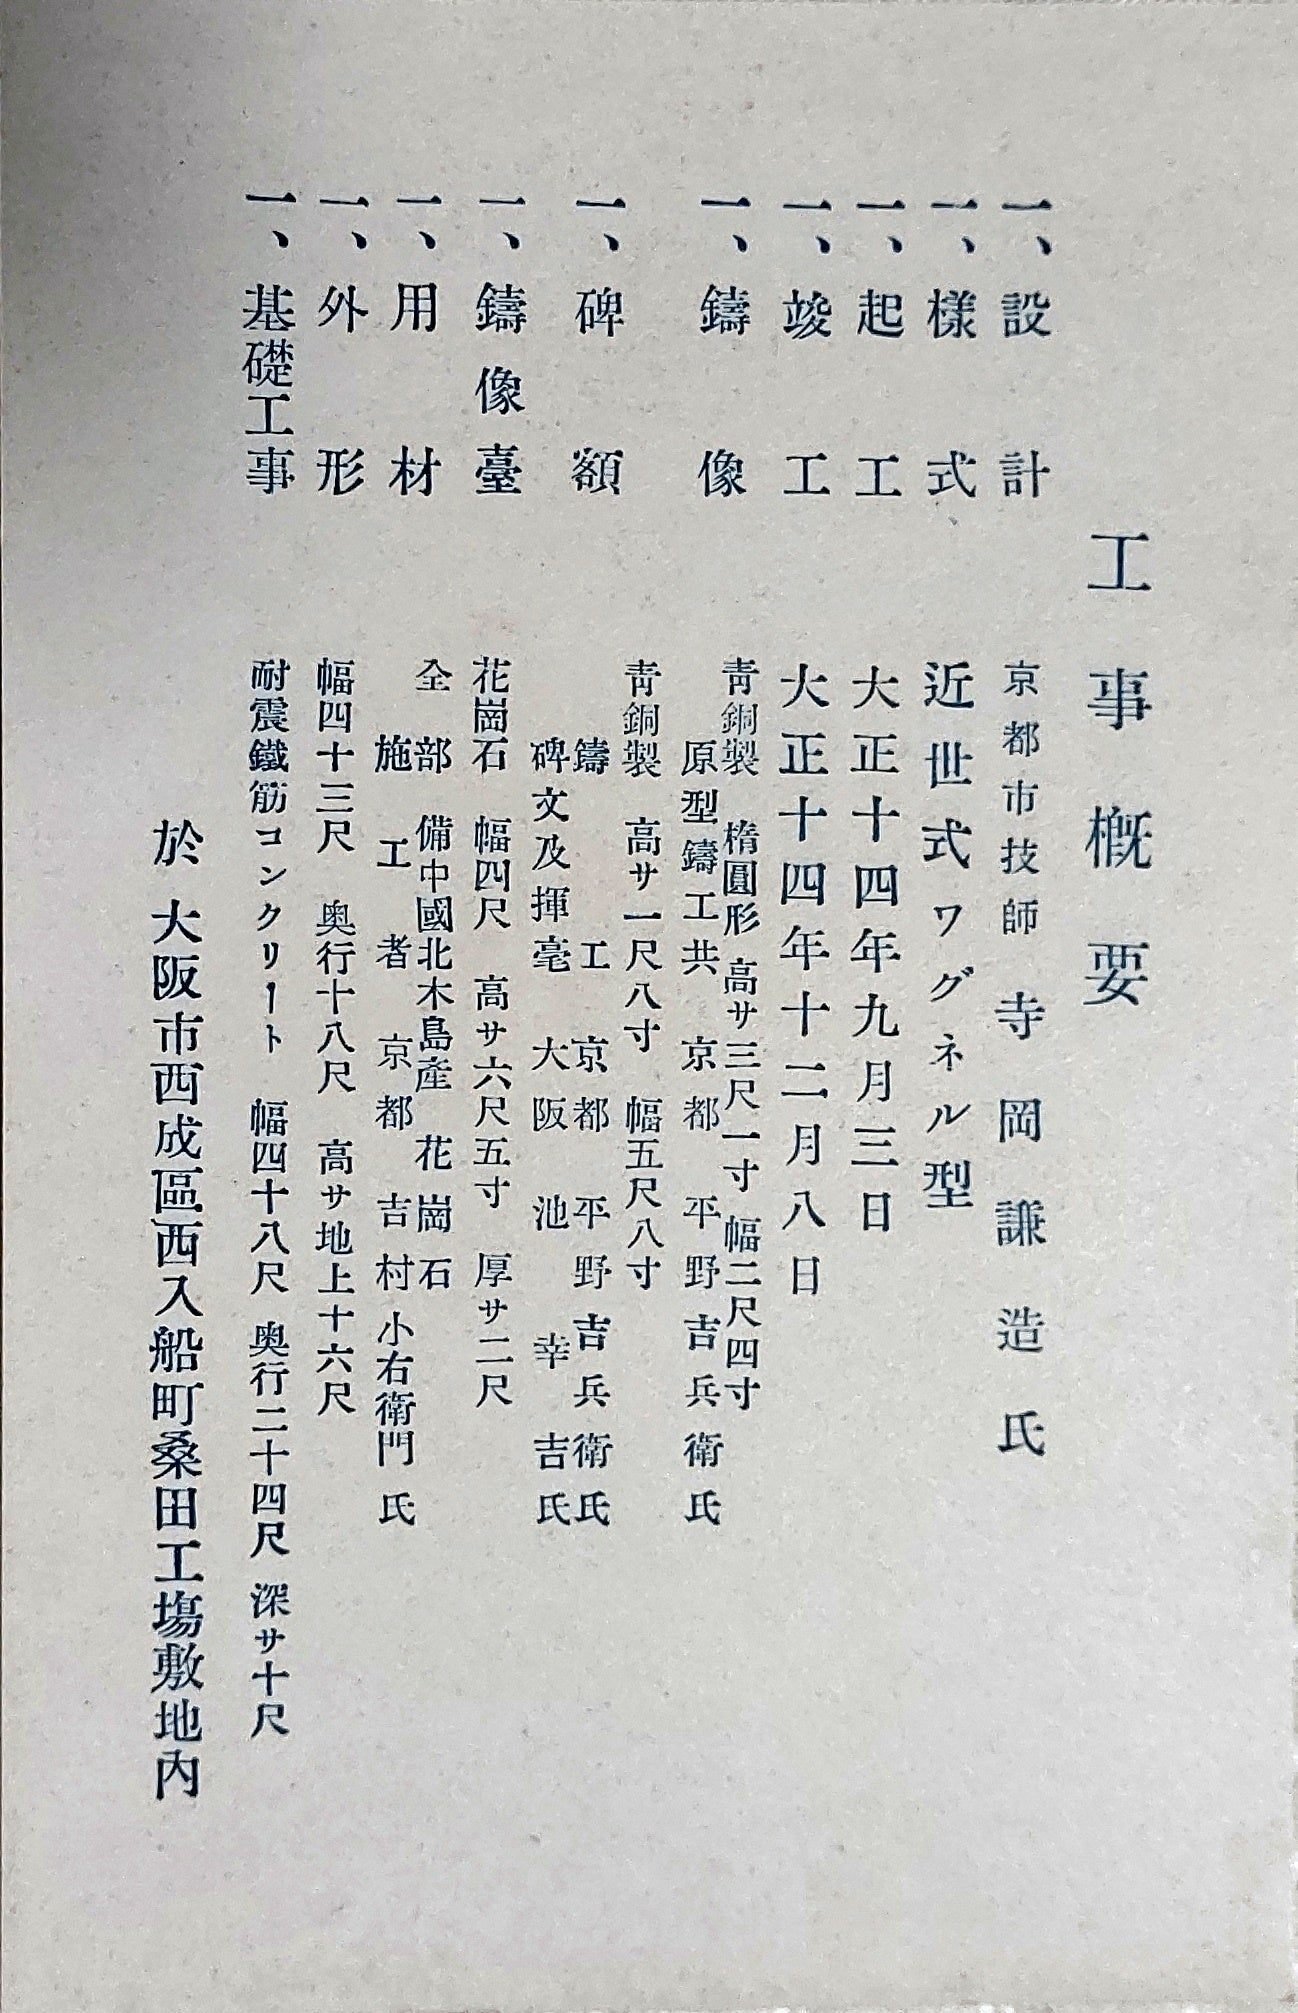 工事概要
一、設計 京都市技師 寺岡謙造氏
一、樣式 近世式ワグネル型
一、起工 大正十四年九月三日
一、竣工 大正十四年十二月八日
一、鑄像 靑銅製 楕圓形 高サ三尺一寸 幅二尺四寸
原型鑄工共 京都 平野吉兵衛氏
一、碑額 靑銅製 高サ一尺八寸 幅五尺八寸
鑄工 京都 平野吉兵衛氏
碑文及揮毫 大阪 池幸吉氏
一、鑄像臺 花崗石 幅四尺 高サ六尺五寸 厚サ二尺
一、用材 全部 備中國北木島產 花崗石
施工者 京都 吉村小右衛門氏
一、外形 幅四十三尺 奥行十八尺 高サ地上十六尺
一、基礎工事 耐震鐵筋コンクリート 幅四十八尺 奥行二十四尺 深サ十尺
於 大阪市西成區西入船町桑田工塲敷地內